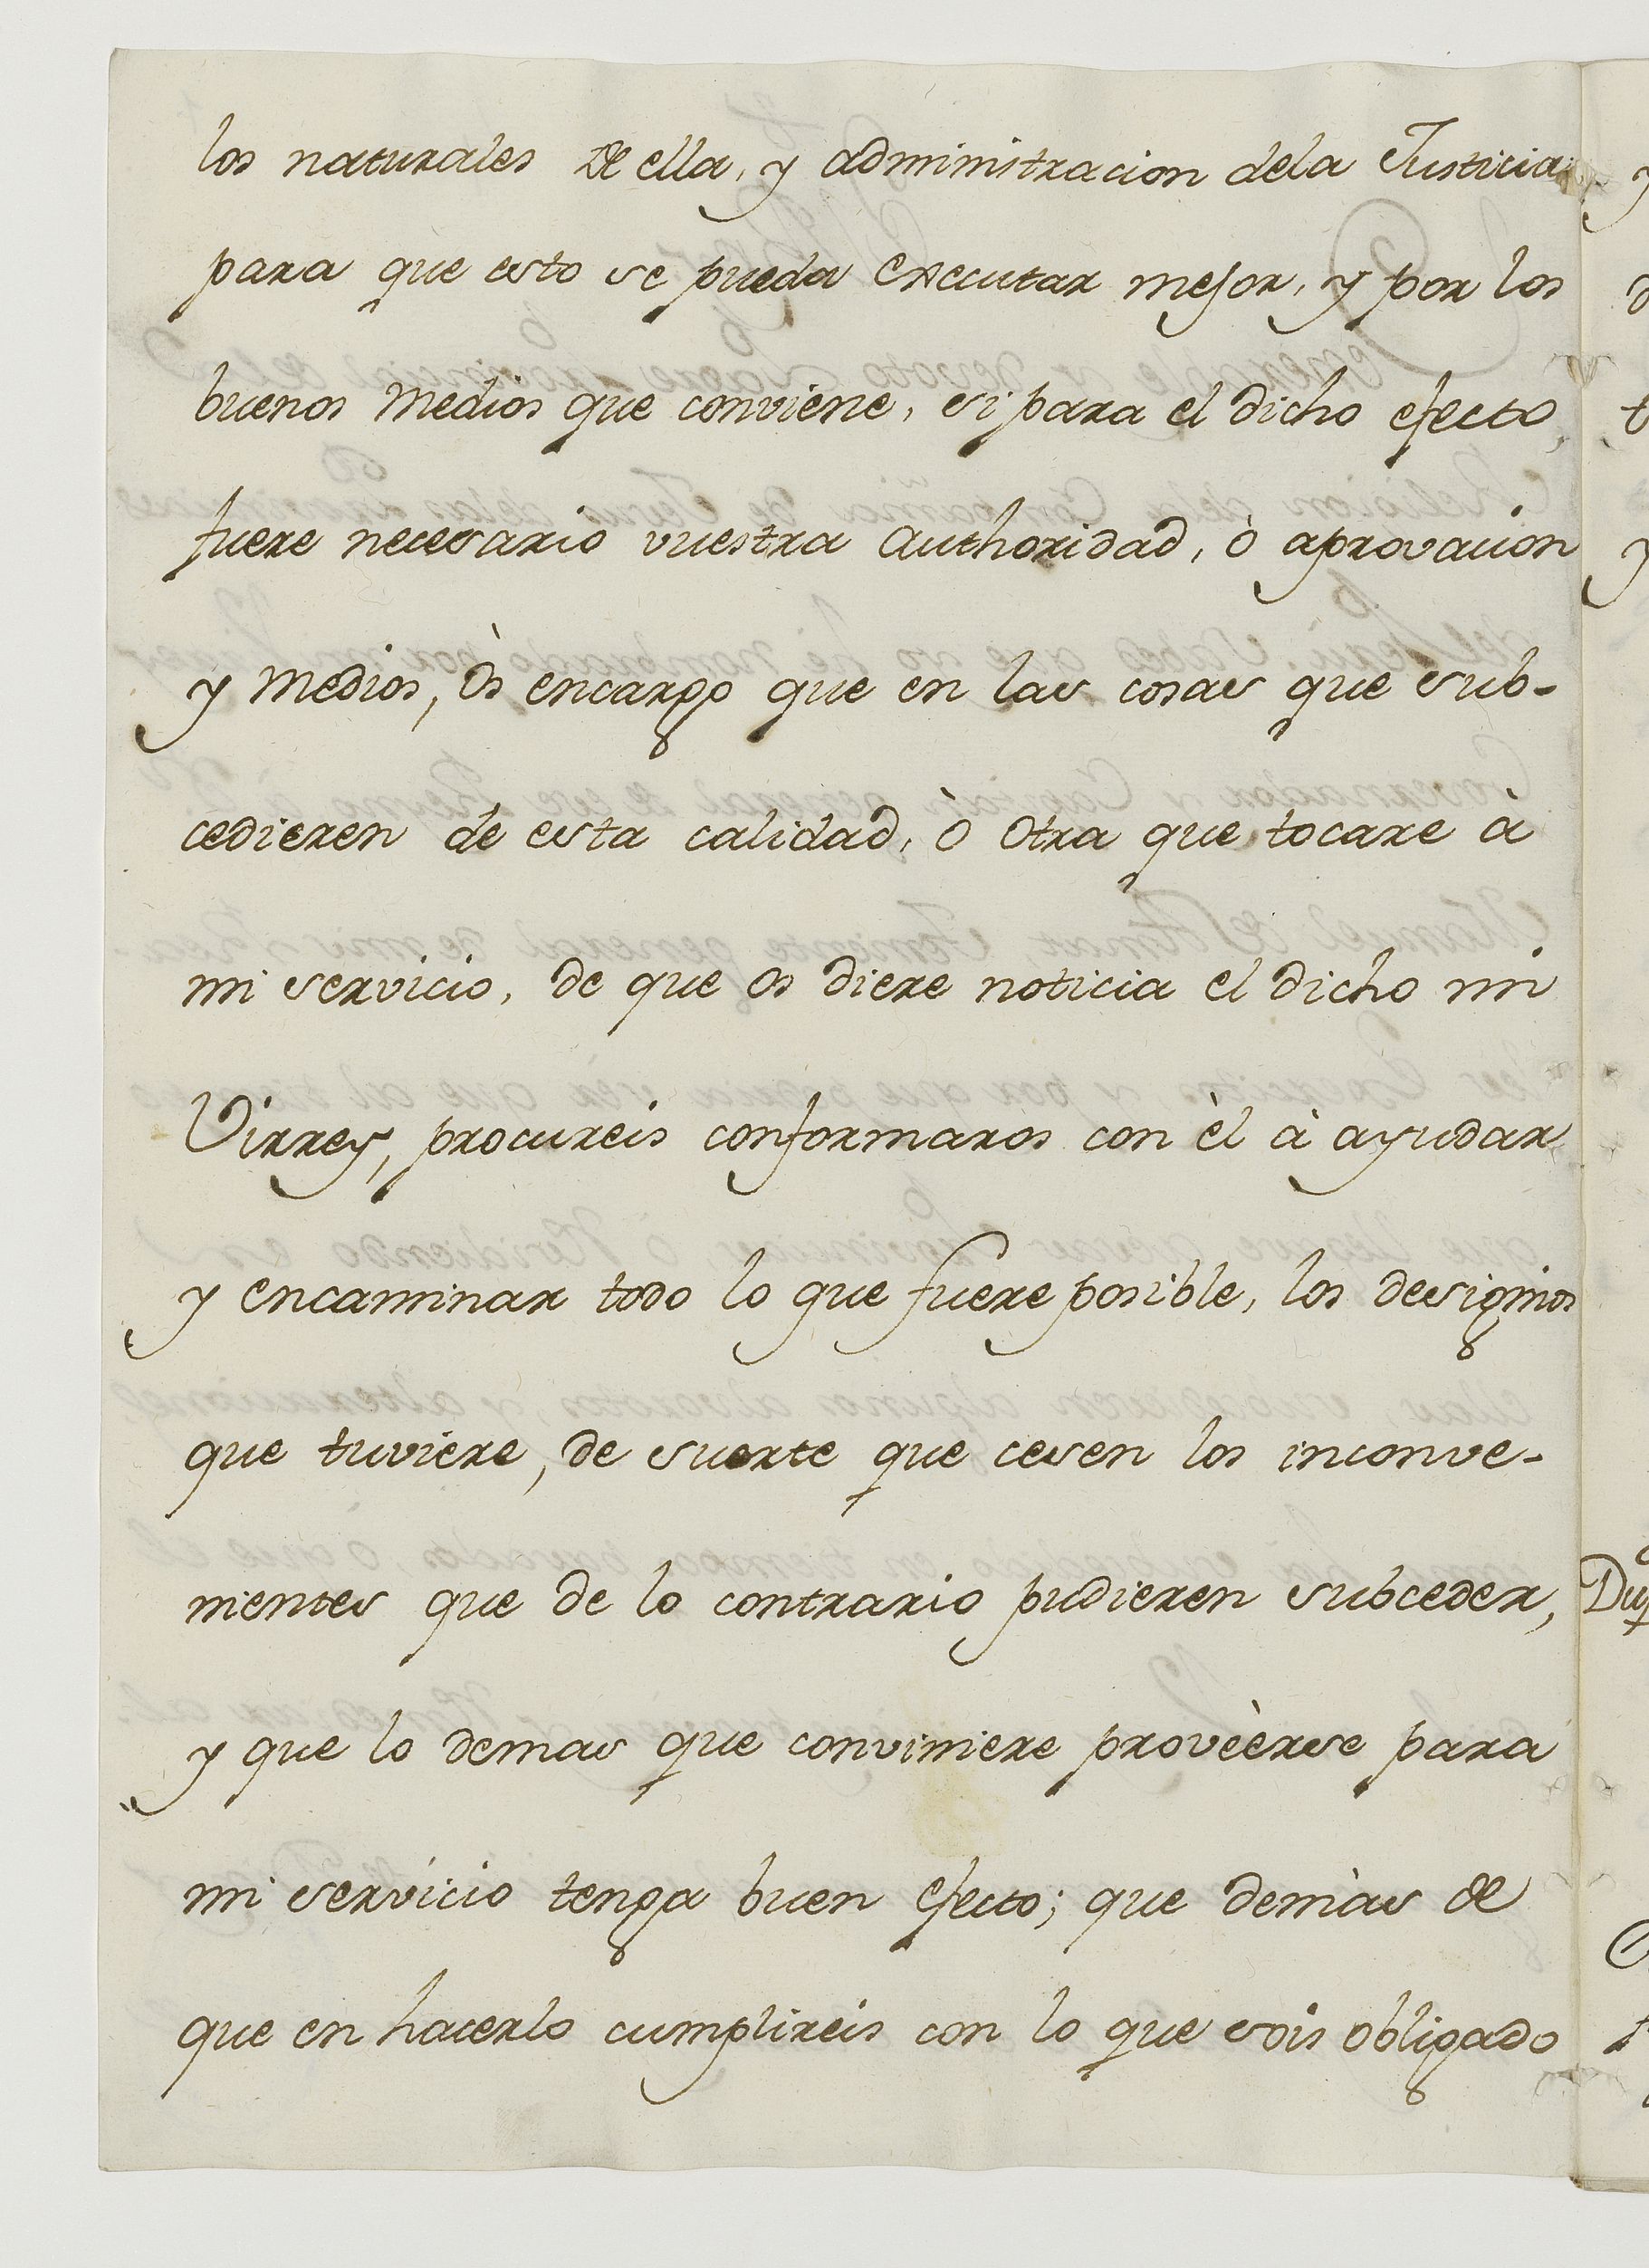 los naturales de ella, y adminitracion dela Justicia
para que esto se pueda executar mejor, y por los
buenos medios que conviene, si para el dicho efecto,
fuere necesario vuestra authoridad, ò aprovacion
y medios, òs encargo que en las cosas que sub-
cedieren de esta calidad, ò otra que tocare à
mi servicio, de que os diere noticia el dicho mi
Virrey, procureis conformaros con èl à ayudar
y encaminar todo lo que fuere posible, los designios
que tuviere, de suerte que cesen los inconve-
nientes que de lo contrario pudieren subceder,
y que lo demas que conviniere provèerse para
mi servicio tenga buen efecto; que demàs de
que en hacerlo cumplireis con lo que sois obligado